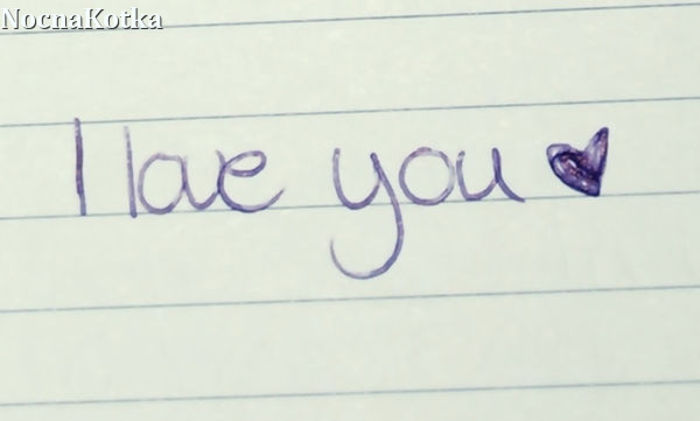 NocnaKotka
I love you